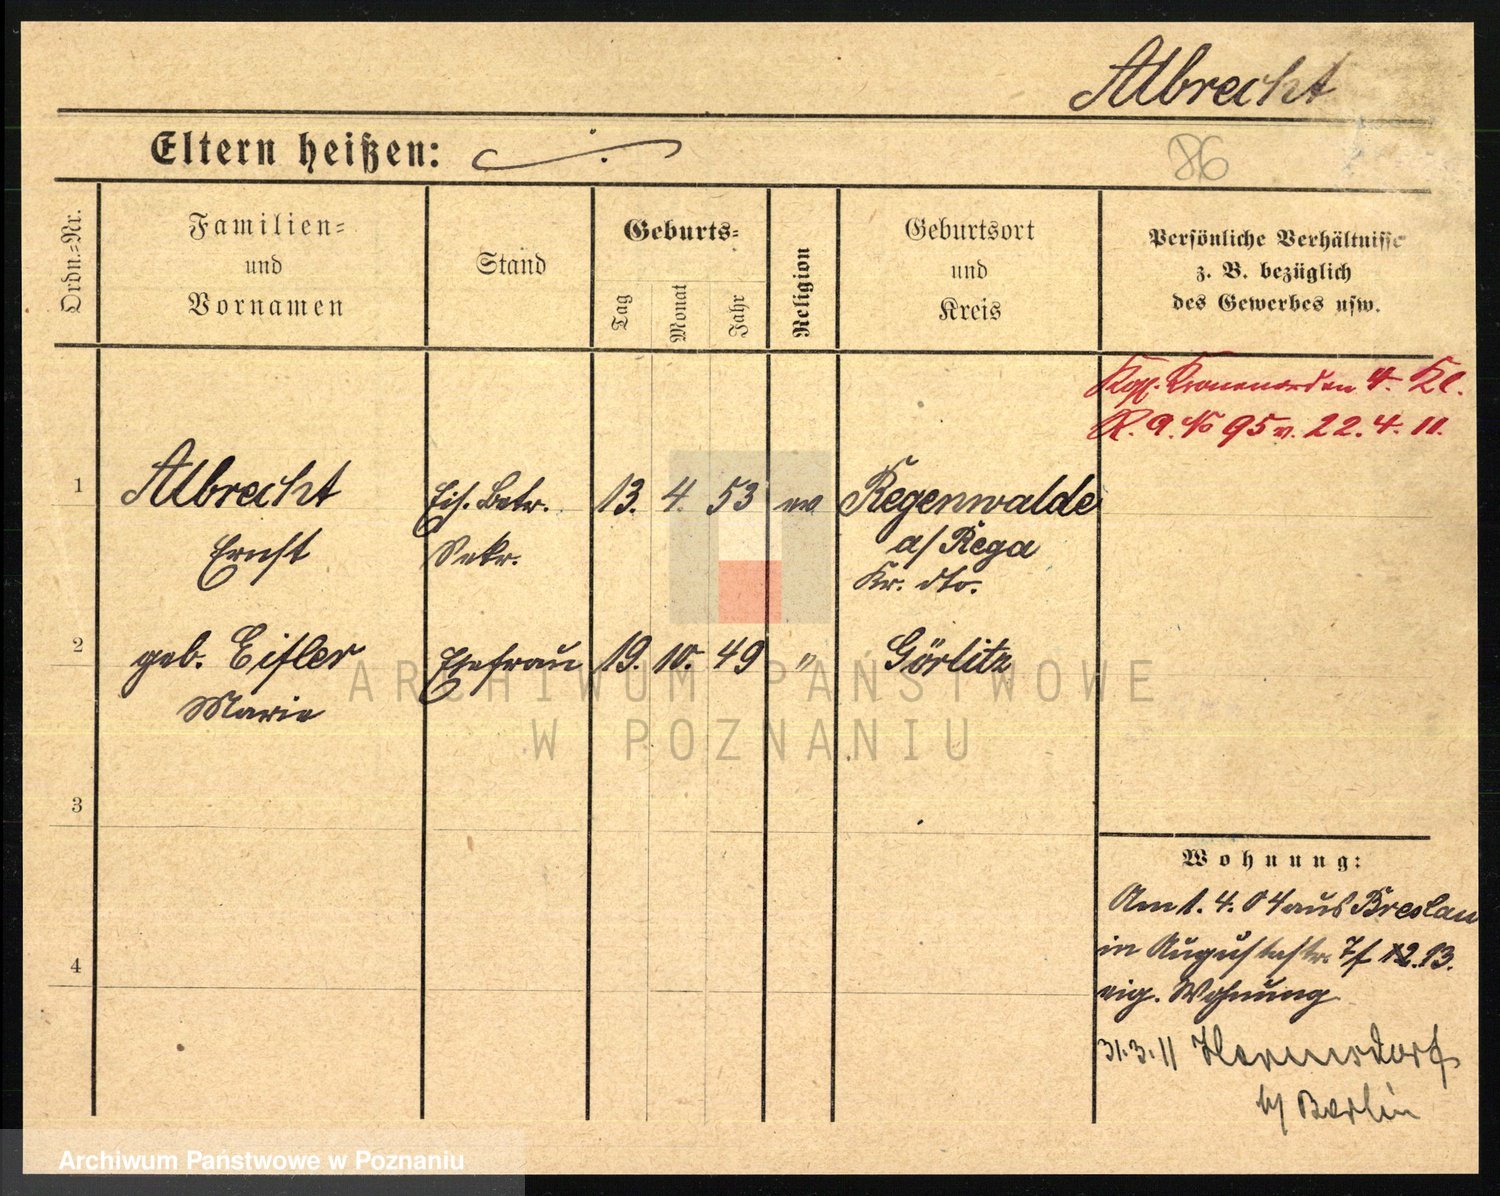 Albrecht
Eltern heißen:
86
Ordn.=Nr.
Familien=
und
Vornamen
Stand
Geburts=
Tag
Monat
Jahr
Religion
Geburtsort
und
Kreis
Persönliche Verhältnisse
z. B. bezüglich
des Gewerbes usw.
Kgl. Kronenorden 4. Kl.
R. 9. No 95 v. 22. 4. 11.
1 Albrecht Eis. Betr. 13. 4. 53 ev Regenwalde
Ernst Sekr. a/Rega
Kr. dto.
2 geb. Eifler Ehefrau 19. 10. 49 " Görlitz
Marie
3
4
Wohnung:
Am 1. 4. 04 aus Breslau
in Augustastr. 12.13.
eig. Wohnung
31.3.11 Hermsdorf
b/ Berlin
ARCHIWUM PAŃSTWOWE
W POZNANIU
Archiwum Państwowe w Poznaniu